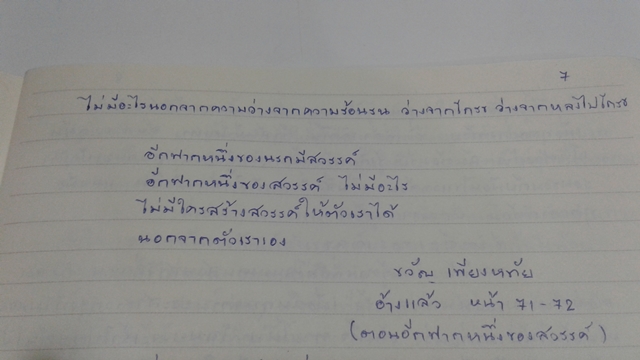 7
ไม่มีอะไรนอกจากความว่างจากความร้อนรน ว่างจากโกรธ ว่างจากหลงไปโกรธ
อีกฟากหนึ่งของนรกมีสวรรค์
อีกฟากหนึ่งของสวรรค์ ไม่มีอะไร
ไม่มีใครสร้างสวรรค์ให้ตัวเราได้
นอกจากตัวเราเอง
ขวัญ เพียงหทัย
อ้างแล้ว หน้า 71-72
(ตอนอีกฟากหนึ่งของสวรรค์)